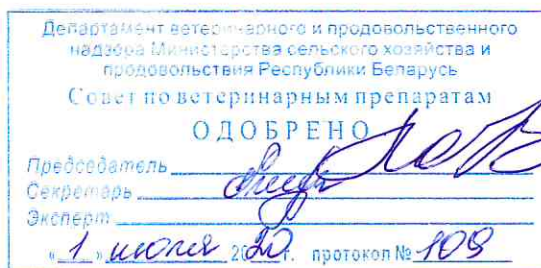 Департамент ветеринарного и продовольственного
надзора Министерства сельского хозяйства и
продовольствия Республики Беларусь
Совет по ветеринарным препаратам
ОДОБРЕНО
Председатель
Секретарь
Эксперт
«1» июля 2020 г. протокол № 109